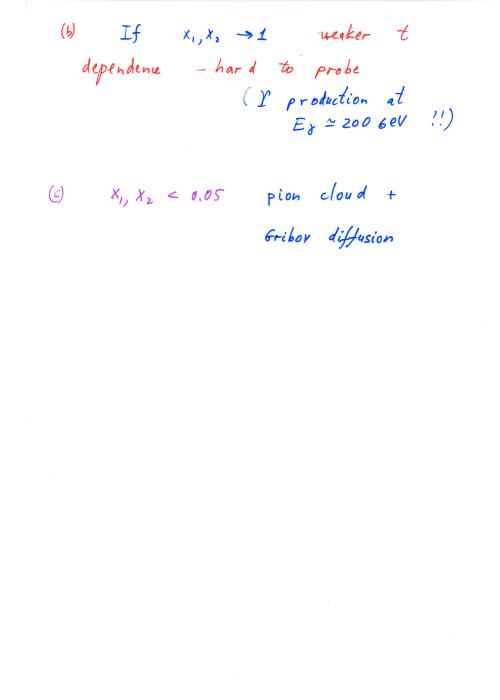 (b) If x₁, x₂ → 1 weaker t
dependence - hard to probe
(ϒ production at
Eγ ≃ 200 GeV !!)
(c) x₁, x₂ < 0.05 pion cloud +
Gribov diffusion